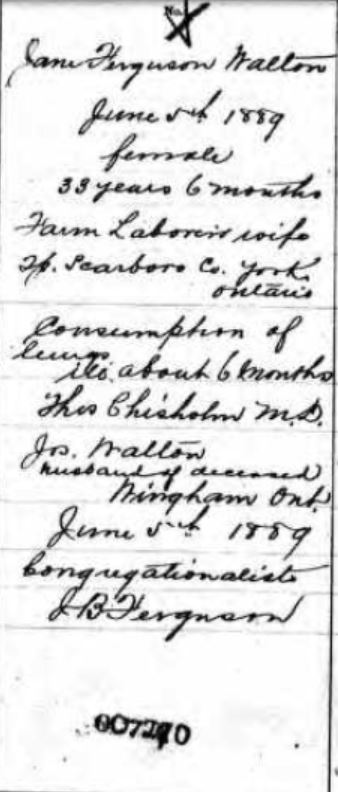 No.
Jane Ferguson Walton
June 5th 1889
female
33 years 6 months
Farm Laborer's wife
Tp. Scarboro Co. York
Ontario
Consumption of
lungs
ill about 6 months
Thos Chisholm M.D.
Jos. Walton
husband of deceased
Wingham Ont.
June 5th 1889
Congregationalist
J B Ferguson
007270